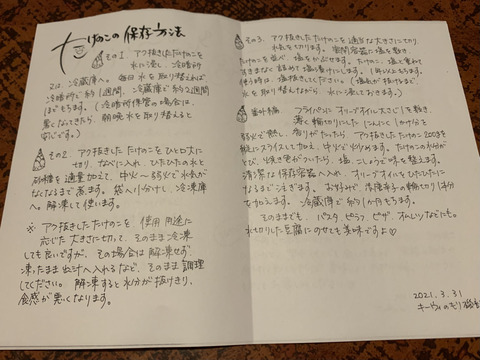 たけのこの保存方法
その1 アク抜きしたたけのこを
水に浸し、冷暗所
又は、冷蔵庫へ。毎日水を取り替えれば、
冷暗所で約1週間、冷蔵庫で約2週間
ほどもちます。(冷暗所保管の場合は、
暑くなってきたら、朝晩水を取り替えると
安心です。)
その2 アク抜きしたたけのこをひと口大に
切り、なべに入れ、ひたひたの水と
砂糖を適量加えて、中火〜弱火で水気が
なくなるまで煮ます。袋へ小分けし、冷凍庫
へ。解凍して使います。
※アク抜きしたたけのこを使用用途に
応じた大きさに切って、そのまま冷凍
しても良いですが、その場合は解凍せず、
凍ったまま出汁へ入れるなど、そのまま調理
してください。解凍すると水分が抜けきり、
食感が悪くなります。
その3. アク抜きしたたけのこを適当な大きさに切り
水気を切ります。密閉容器に塩を敷き
たけのこを並べ、塩をふりかけます。たけのこ、塩と重ねて
すきまなく詰めて塩漬けにします。1年以上もちます。
使う時は、塩抜きしてください。(塩気が抜けるまで、
水を取り替えながら、水に浸しておきます。)
番外編 フライパンにオリーブオイル大さじ1を熱し、
薄く輪切りにしたにんにく1かけ分を
弱火で熱し、香りがたったら、アク抜きしたたけのこ200gを
縦にスライスして加え、中火で炒めます。たけのこの水分が
とび、焼き色がついたら、塩、こしょうで味を整えます。
清潔な保存容器へ入れ、オリーブオイルをひたひたに
なるまで注ぎます。お好みで、赤唐辛子の輪切り1本分
を加えます。冷蔵で約1か月もちます。
そのままでも、パスタ、ピラフ、ピザ、オムレツなどにも。
水切りした豆腐にのせても美味ですよ♡
2021.3.31
キーウィのもり